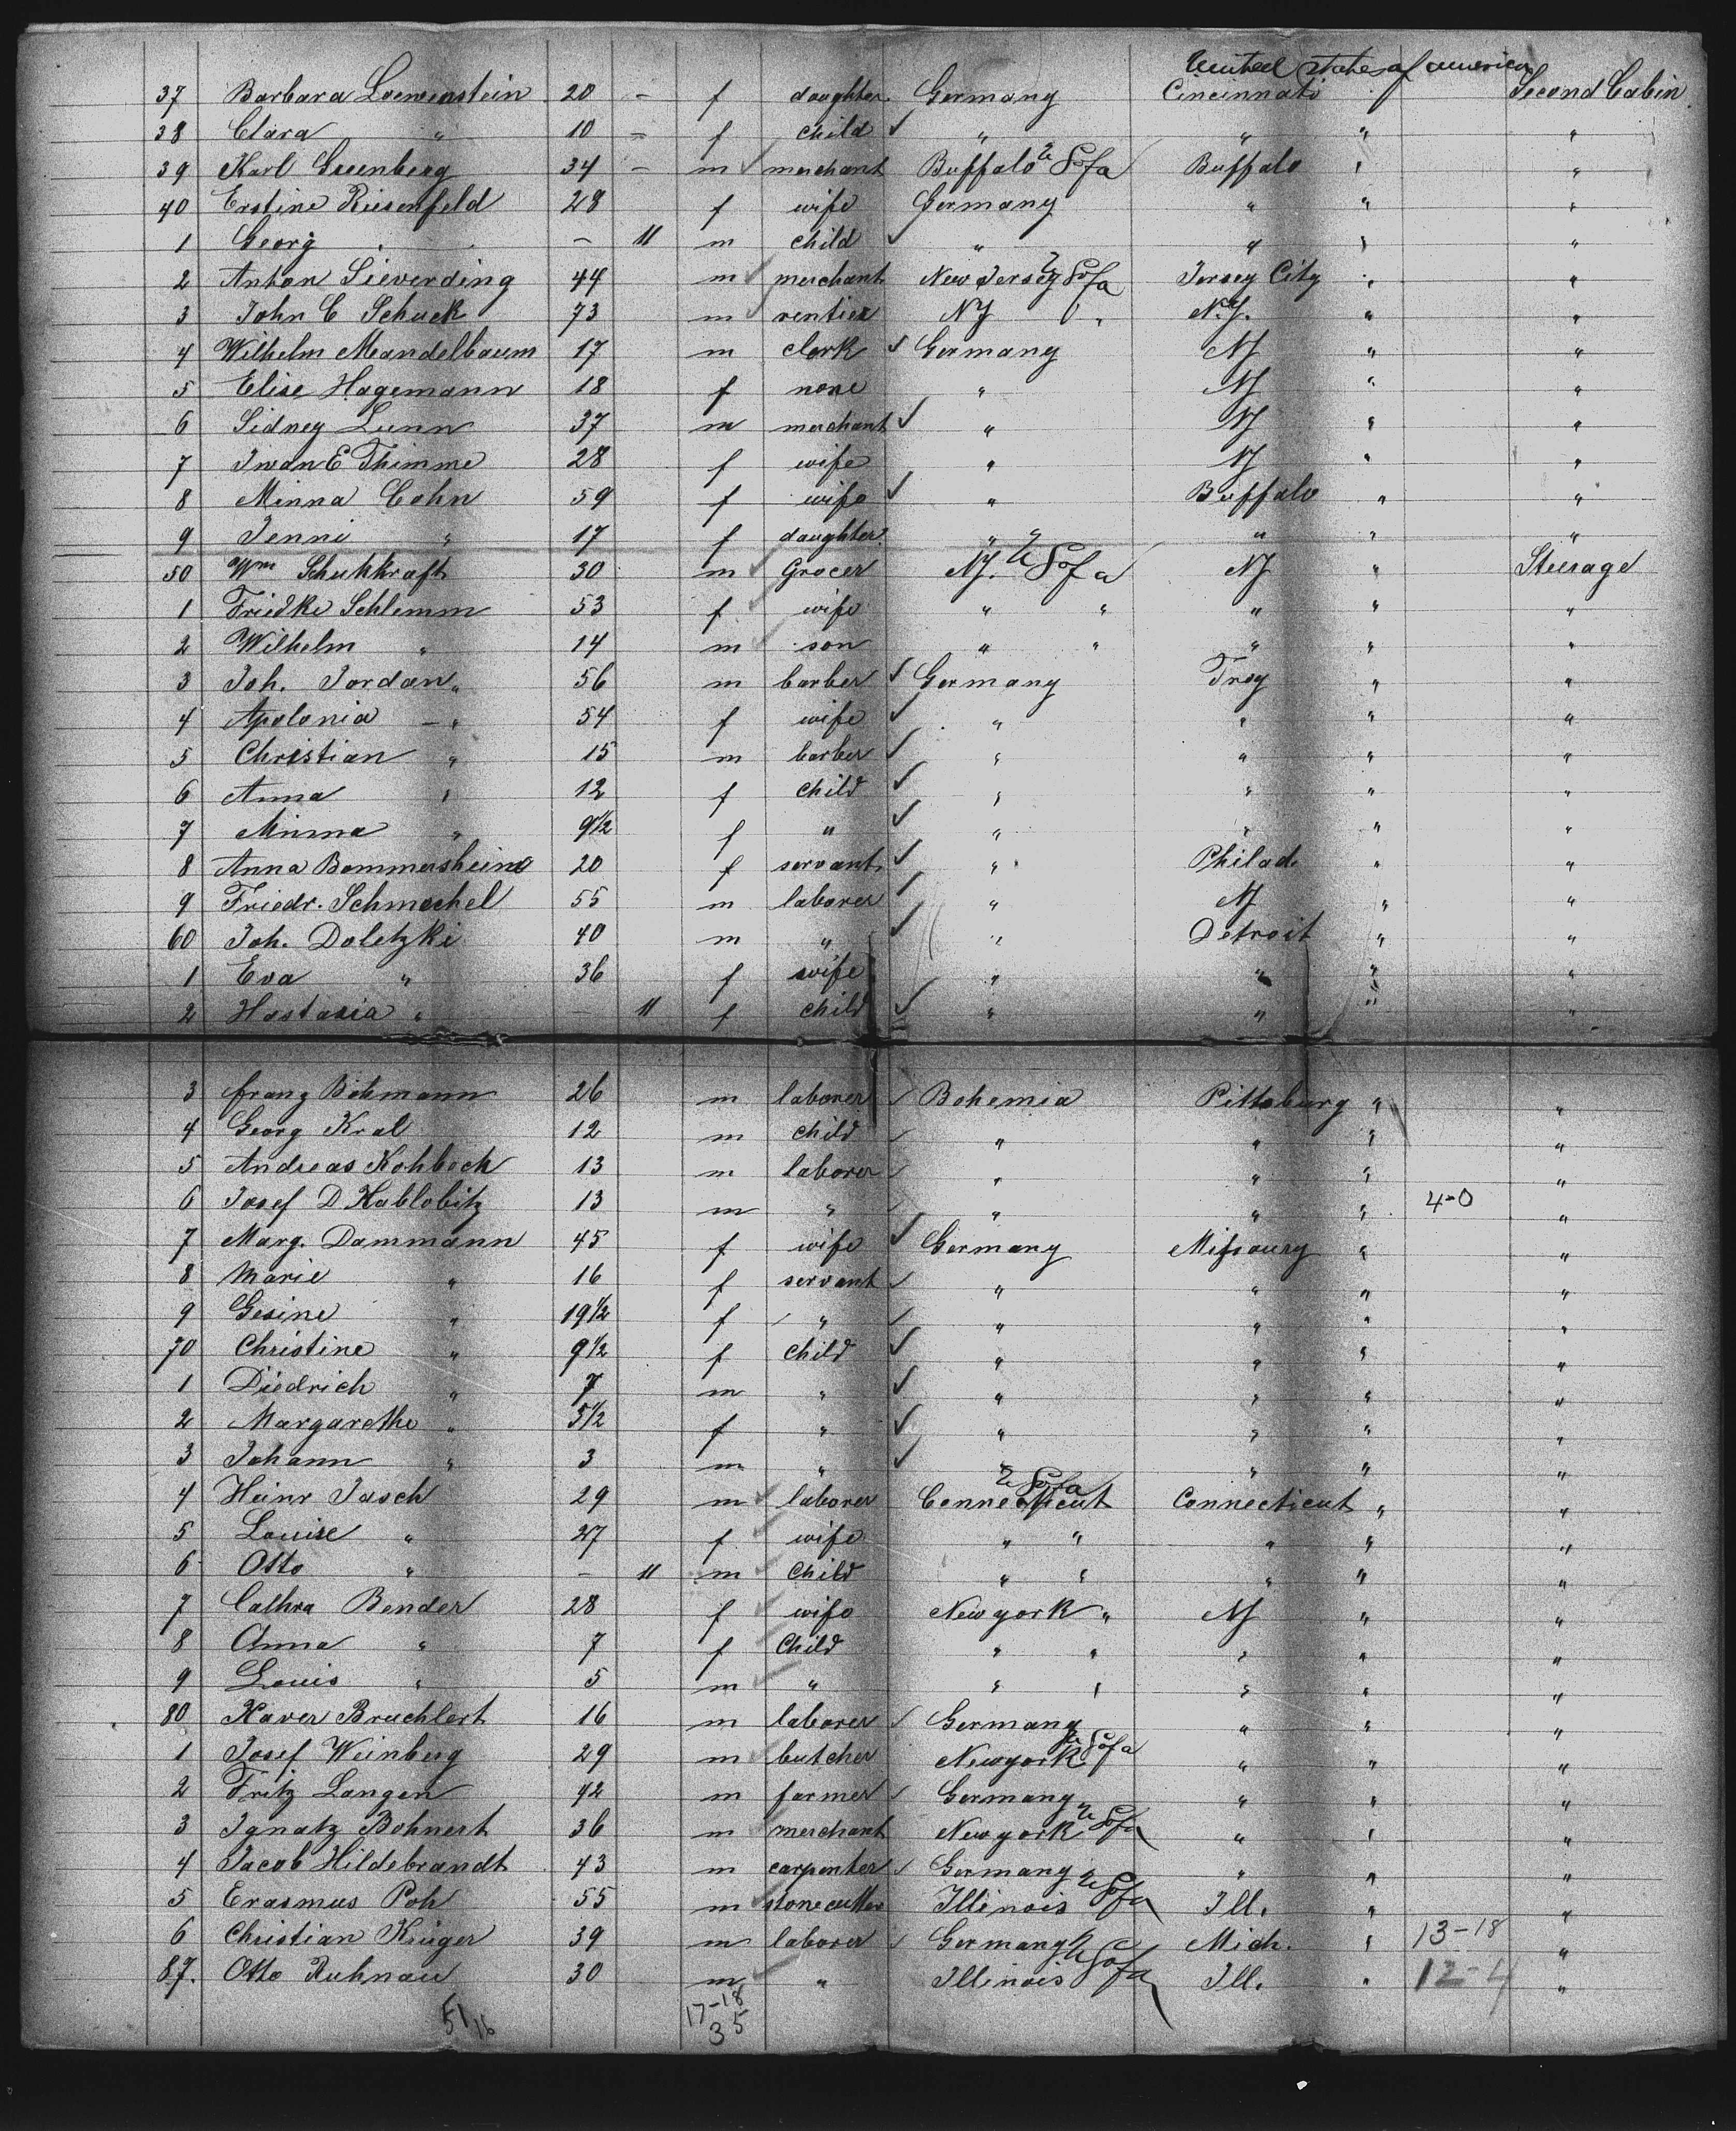 United States of America
37 Barbara Loewenstein 20 – f daughter Germany Cincinnati " Second Cabin
38 Clara " 10 – f child ✓ " " " "
39 Karl Greenberg 34 – m ✓ merchant Buffalo U SofA Buffalo " "
40 Erstine Riesenfeld 28 f wife Germany " " "
1 Georg " – 11 m child ✓ " " " "
2 Anton Sieverding 44 m ✓ merchant New Jersey U SofA Jersey City " "
3 John C Schuck 73 m ✓ rentier NY " " N.Y. " "
4 Wilhelm Mandelbaum 17 m clerk ✓ Germany NY " "
5 Elise Hagemann 18 f none " NY " "
6 Sidney Lunn 37 m merchant ✓ " NY " "
7 Iwan E Thimme 28 f wife " NY " "
8 Minna Cohn 59 f wife ✓ " Buffalo " "
9 Jenni " 17 f daughter " " " "
50 Wm Schuhkraft 30 m ✓ Grocer NY. U SofA NY " Steerage
1 Friedke Schlemm 53 f ✓ wife " " " " "
2 Wilhelm " 14 m ✓ son " " " " "
3 Joh. Jordan " 56 m barber ✓ Germany Troy " "
4 Apolonia – " 54 f wife ✓ " " " "
5 Christian " 15 m barber ✓ " " " "
6 Anna " 12 f child ✓ " " " "
7 Minna " 9½ f " ✓ " " " "
8 Anna Bommersheim 20 f servant ✓ " Philad. " "
9 Friedr. Schmechel 55 m laborer ✓ " NY " "
60 Joh. Doletzki 40 m " ✓ " Detroit " "
1 Eva " 36 f wife " " " "
2 Hastasia " – 11 f child ✓ " " " "
3 Franz Bohmann 26 m laborer ✓ Bohemia Pittsburg " "
4 Georg Kral 12 m child ✓ " " " "
5 Andreas Kohbeck 13 m laborer ✓ " " " "
6 Josef D Hablobitz 13 m " ✓ " " " 4-0 "
7 Marg. Dammann 45 f wife ✓ Germany Missoury " "
8 Marie " 16 f servant ✓ " " " "
9 Gesine " 19½ f " ✓ " " " "
70 Christine " 9½ f child ✓ " " " "
1 Diedrich " 7 m " ✓ " " " "
2 Margarethe " 5½ f " ✓ " " " "
3 Johann " 3 m " ✓ " " " "
4 Heinr Jasch 29 m ✓ laborer Connecticut U SofA Connecticut " "
5 Louise " 27 f ✓ wife " " " " "
6 Otto " – 11 m ✓ Child " " " " "
7 Cathra Bender 28 f ✓ wife Newyork " NY " "
8 Anna " 7 f ✓ Child " " " " "
9 Louis " 5 m ✓ " " " " " "
80 Xaver Bruchlert 16 m laborer ✓ Germany " " "
1 Josef Weinberg 29 m ✓ butcher Newyork U SofA " " "
2 Fritz Langen 42 m farmer ✓ Germany " " "
3 Ignatz Bohnert 36 m ✓ merchant Newyork U SofA " " "
4 Jacob Hildebrandt 43 m carpenter ✓ Germany " " "
5 Erasmus Poh 55 m ✓ stonecutter Illinois U SofA Ill. " "
6 Christian Krüger 39 m laborer ✓ Germany Mich. " 13-18 "
87. Otto Ruhnau 30 m ✓ " Illinois U SofA Ill. " 12-4 "
51/16 17-18
35